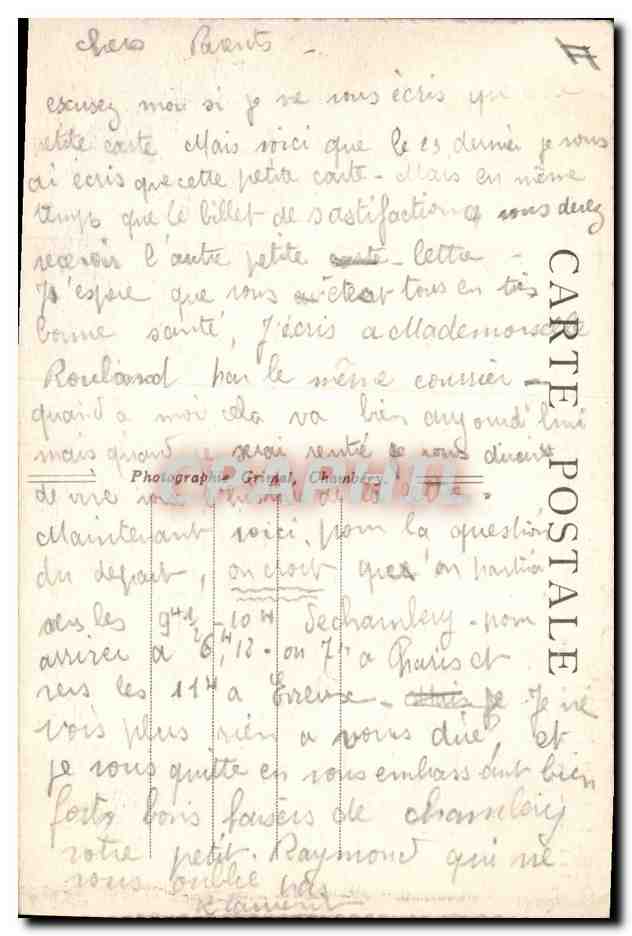 chers Parents -
excusez moi si je ne vous écris que
petite carte Mais voici que le 23 dernier je vous
ai écris que cette petite carte - Mais en même
temps que le billet de sastifaction vous devez
recevoir l'autre petite lettre -
J'espère que vous tous en très
bonne santé, J'écris a Mademoiselle
par le même courrier -
quand a moi cela va bien aujourd'hui
mais quand je serai rentré je vous
Photographie Grimal, Chambéry.
de vive
Maintenant voici pour la question
du départ, on croit qu'on partira
vers les 9H 1/2 - 10H de chambery - pour
arriver a 6H, 12 - ou 7H a Paris et
vers les 11H a - Je ne
vois plus rien a vous dire, et
je vous quitte en vous embrassant bien
fort bons baisers de chambery
votre petit Raymond qui ne
vous oublie pas
CARTE POSTALE